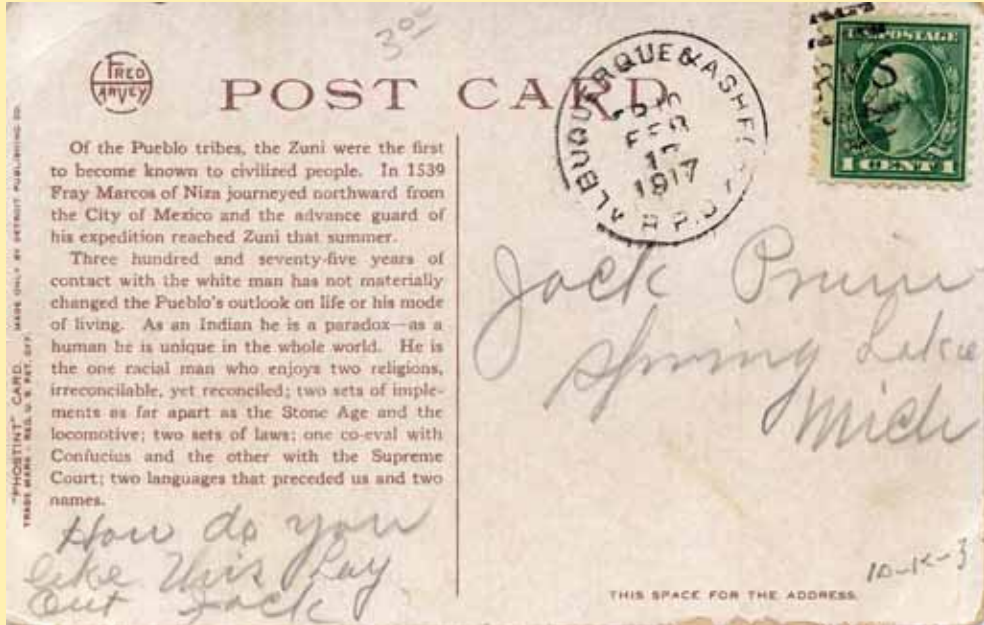 3 05
FRED
HARVEY
POST CARD
ALBUQUERQUE & ASH
FEB
1917
R.P.O.
U.S. POSTAGE
RMS
1 CENT 1
Of the Pueblo tribes, the Zuni were the first
to become known to civilized people. In 1539
Fray Marcos of Niza journeyed northward from
the City of Mexico and the advance guard of
his expedition reached Zuni that summer.
Three hundred and seventy-five years of
contact with the white man has not materially
changed the Pueblo's outlook on life or his mode
of living. As an Indian he is a paradox—as a
human he is unique in the whole world. He is
the one racial man who enjoys two religions,
irreconcilable, yet reconciled; two sets of imple-
ments as far apart as the Stone Age and the
locomotive; two sets of laws; one co-eval with
Confucius and the other with the Supreme
Court; two languages that preceded us and two
names.
"PHOSTINT" CARD. MADE ONLY BY DETROIT PUBLISHING CO.
TRADE MARK - REG. U. S. PAT. OFF.
How do you
like this Lay
Out Jack
Jack
Spring Lake
Mich
10-K-3
THIS SPACE FOR THE ADDRESS.